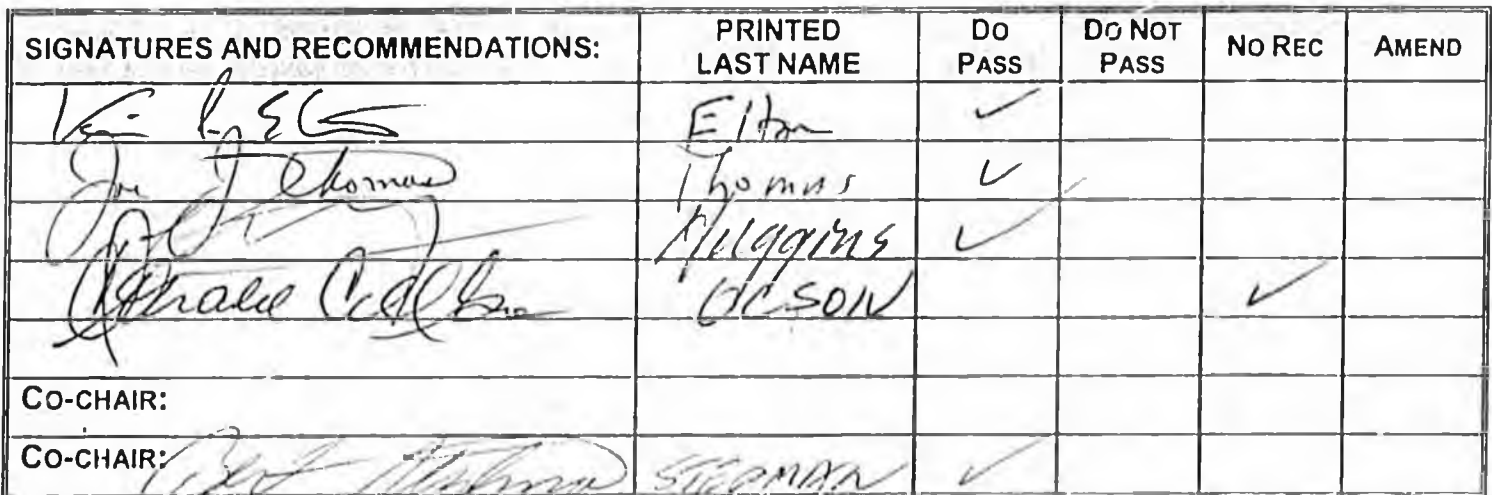 SIGNATURES AND RECOMMENDATIONS: PRINTED LAST NAME DO PASS DO NOT PASS NO REC AMEND
Elton ✓
Joe J Thomas Thomas ✓
Huggins ✓
Olson ✓
CO-CHAIR:
CO-CHAIR: Bert Stedman STEDMAN ✓